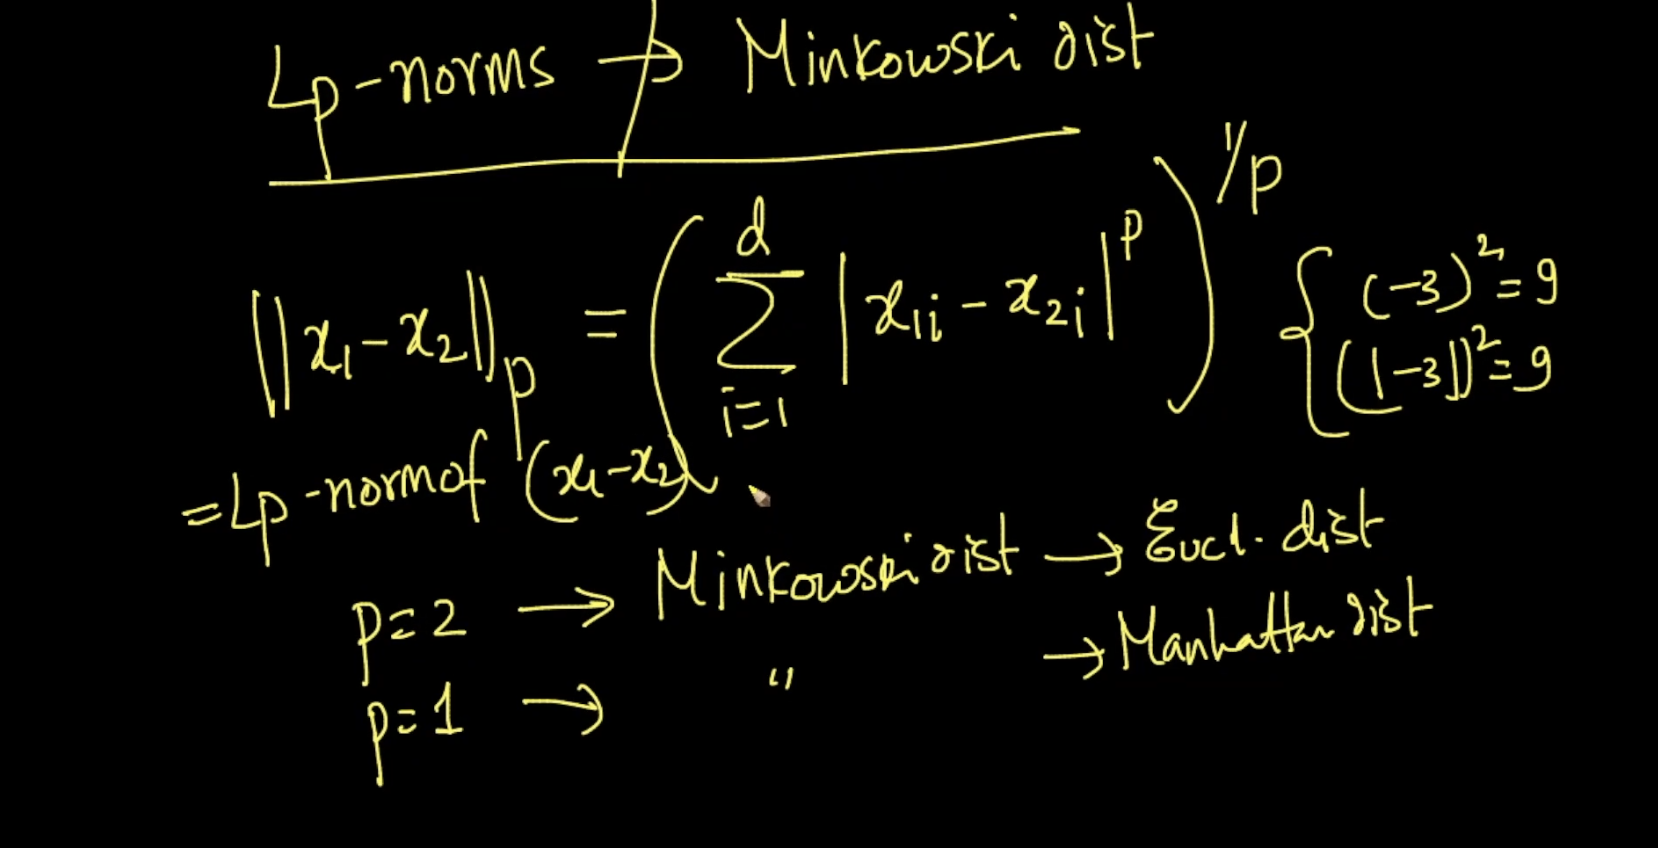 Lp-norms → Minkowski dist
||x₁-x₂||p = (∑ᵈᵢ₌₁ |x₁ᵢ - x₂ᵢ|ᵖ)^1/p
{ (-3)² = 9
(|-3|)² = 9
= Lp-norm of (x₁-x₂)
p=2 → Minkowski dist → Eucl. dist
p=1 → " → Manhattan dist